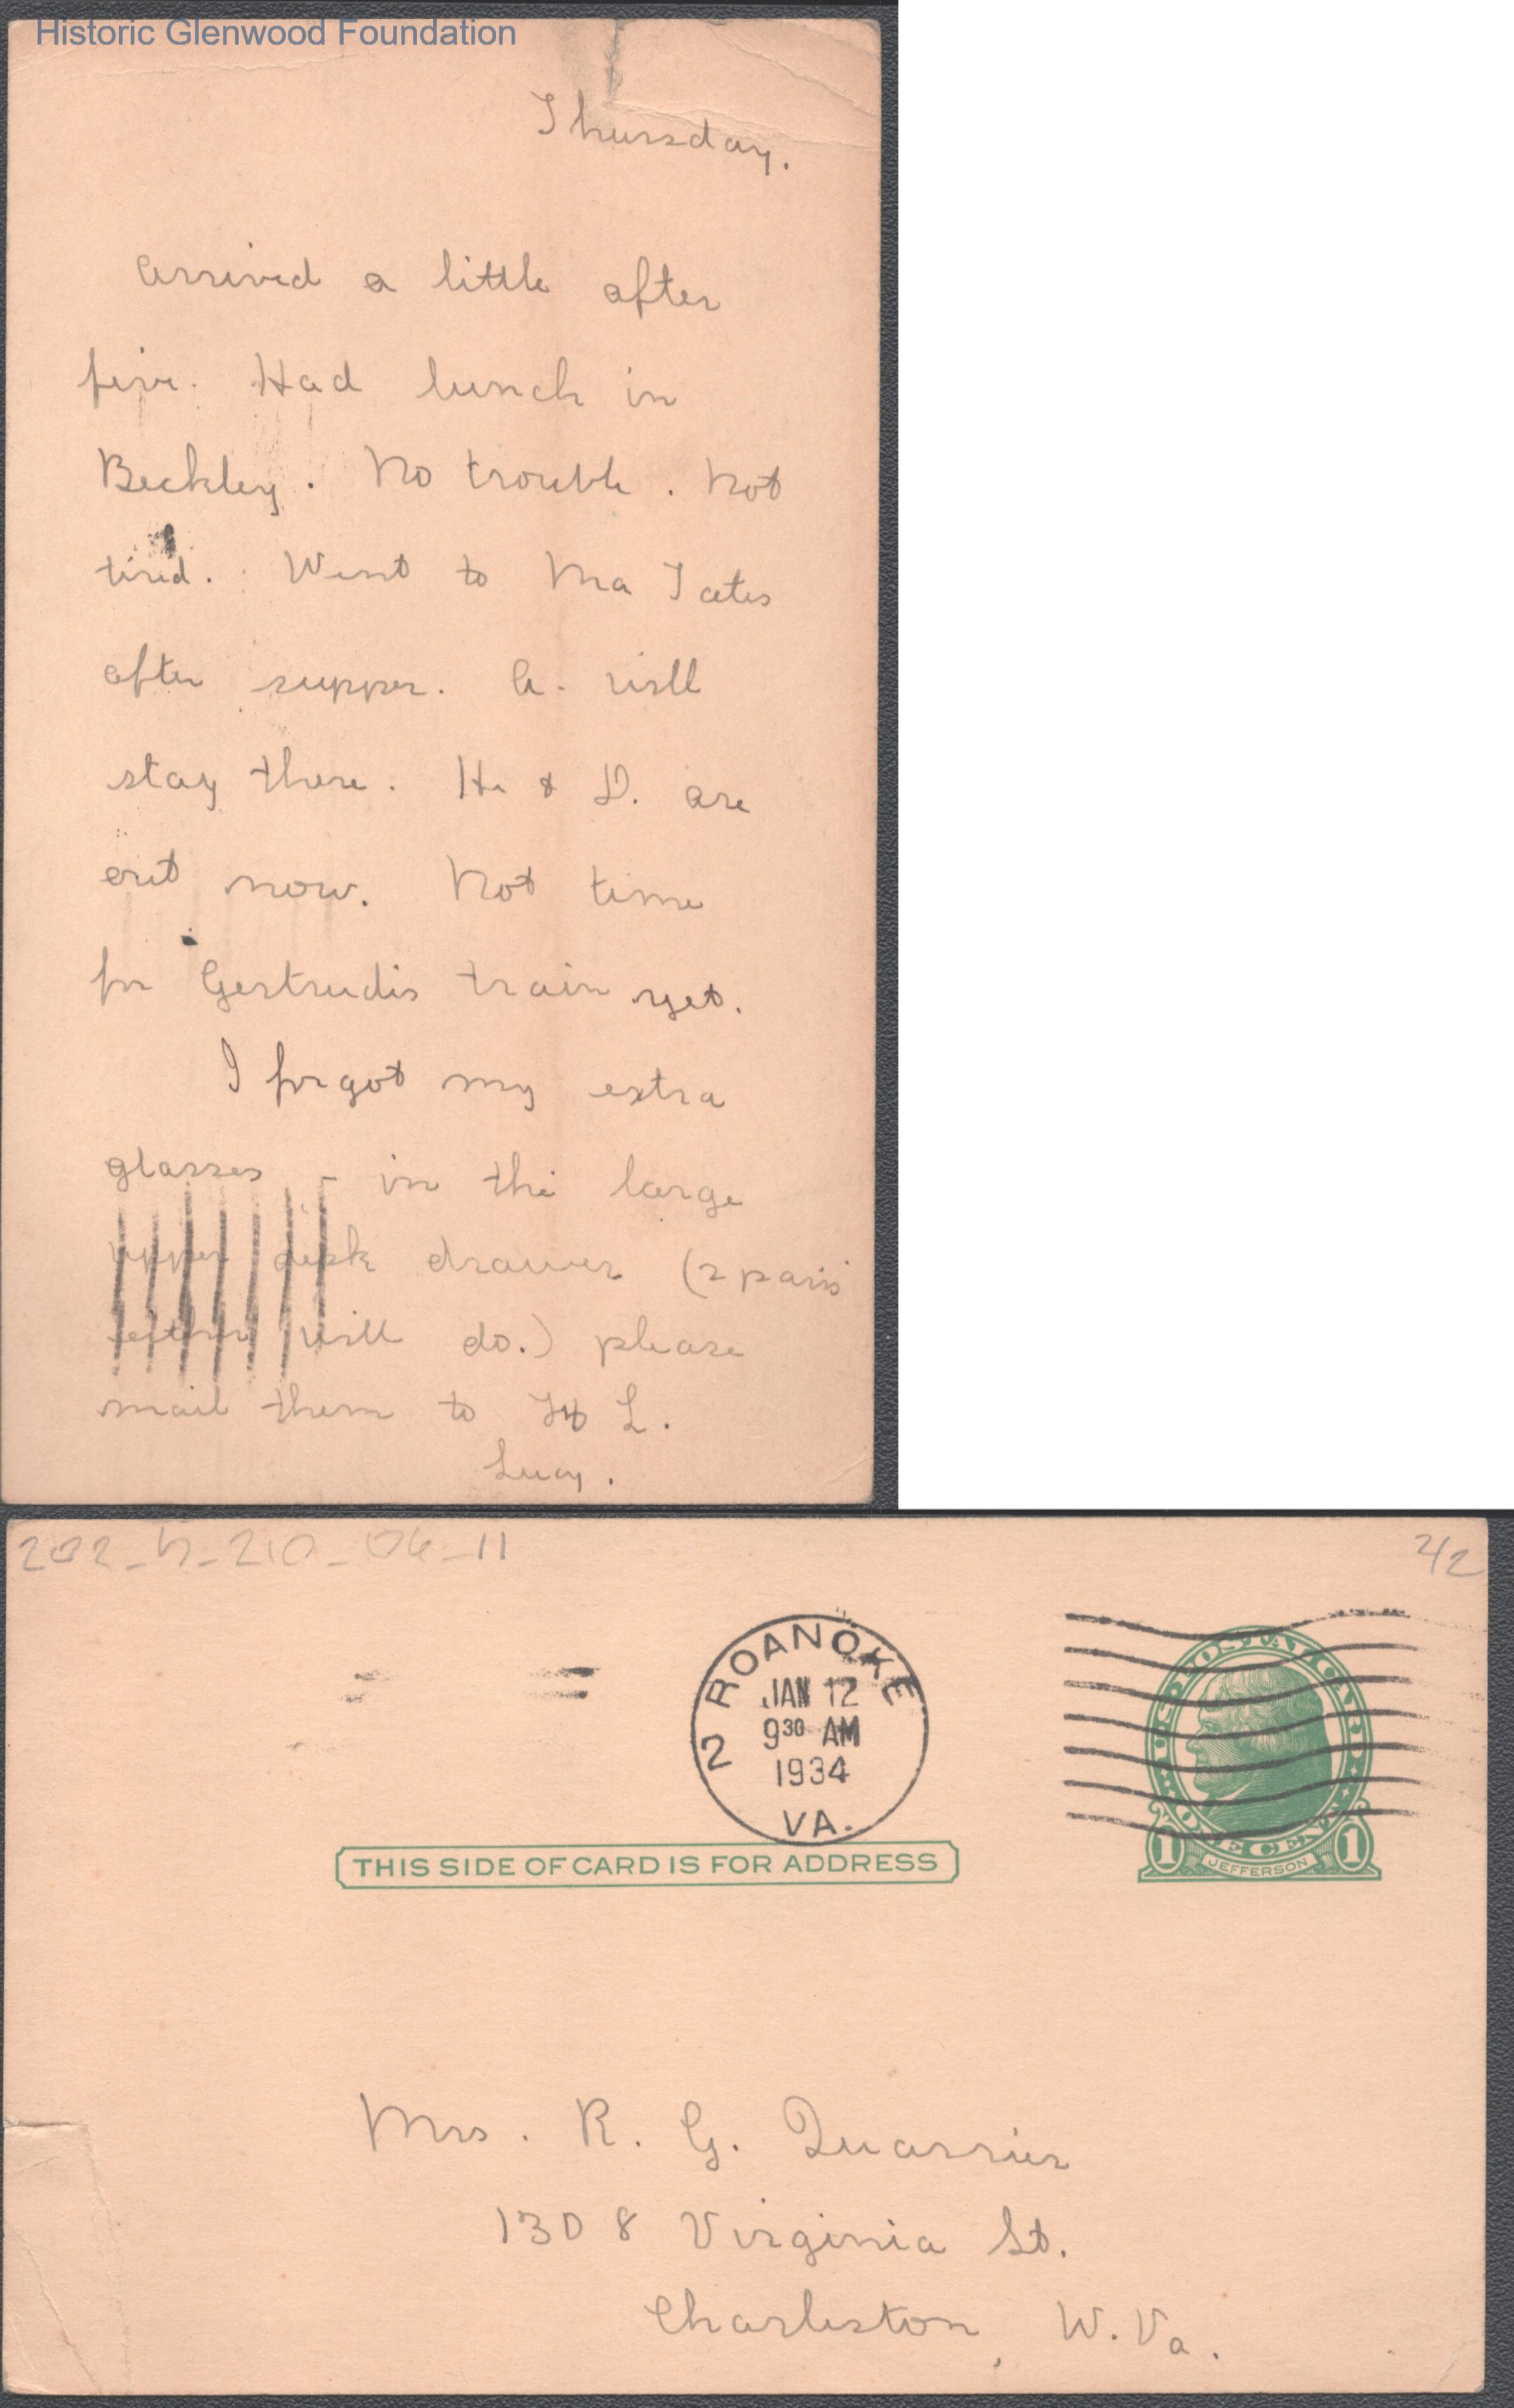 Historic Glenwood Foundation
Thursday.
Arrived a little after
five. Had lunch in
Beckley. No trouble. Not
tired. Went to Ma Tates
after supper. A. will
stay there. H. & D. are
out now. Not time
for Gertrudes train yet.
I forgot my extra
glasses - in the large
upper desk drawer (2 pairs
either will do.) please
mail them to
Lucy.
202-h-210-06-11
2/2
2 ROANOKE
JAN 12
9 30 AM
1934
VA.
U.S. POSTAL CARD
ONE CENT
1 JEFFERSON 1
THIS SIDE OF CARD IS FOR ADDRESS
Mrs. R. G. Quarrier
1308 Virginia St.
Charleston, W. Va.